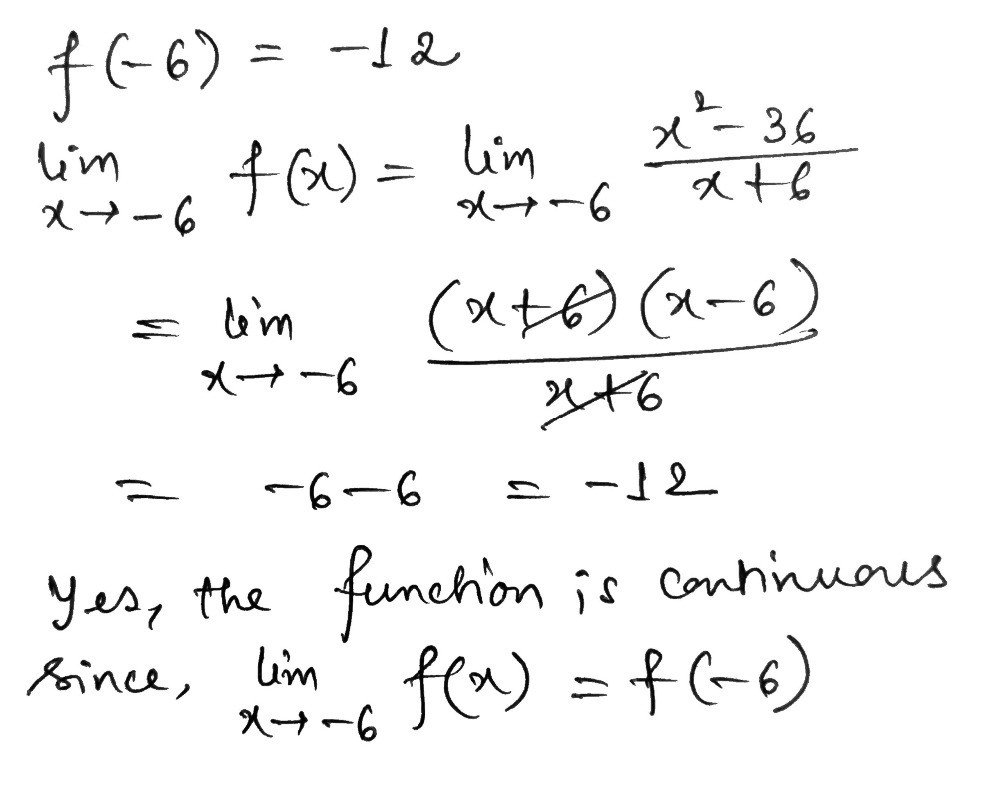 f(-6) = -12
lim x→-6 f(x) = lim x→-6 (x² - 36)/(x+6)
= lim x→-6 (x+6)(x-6)/(x+6)
= -6-6 = -12
Yes, the function is continuous
since, lim x→-6 f(x) = f(-6)